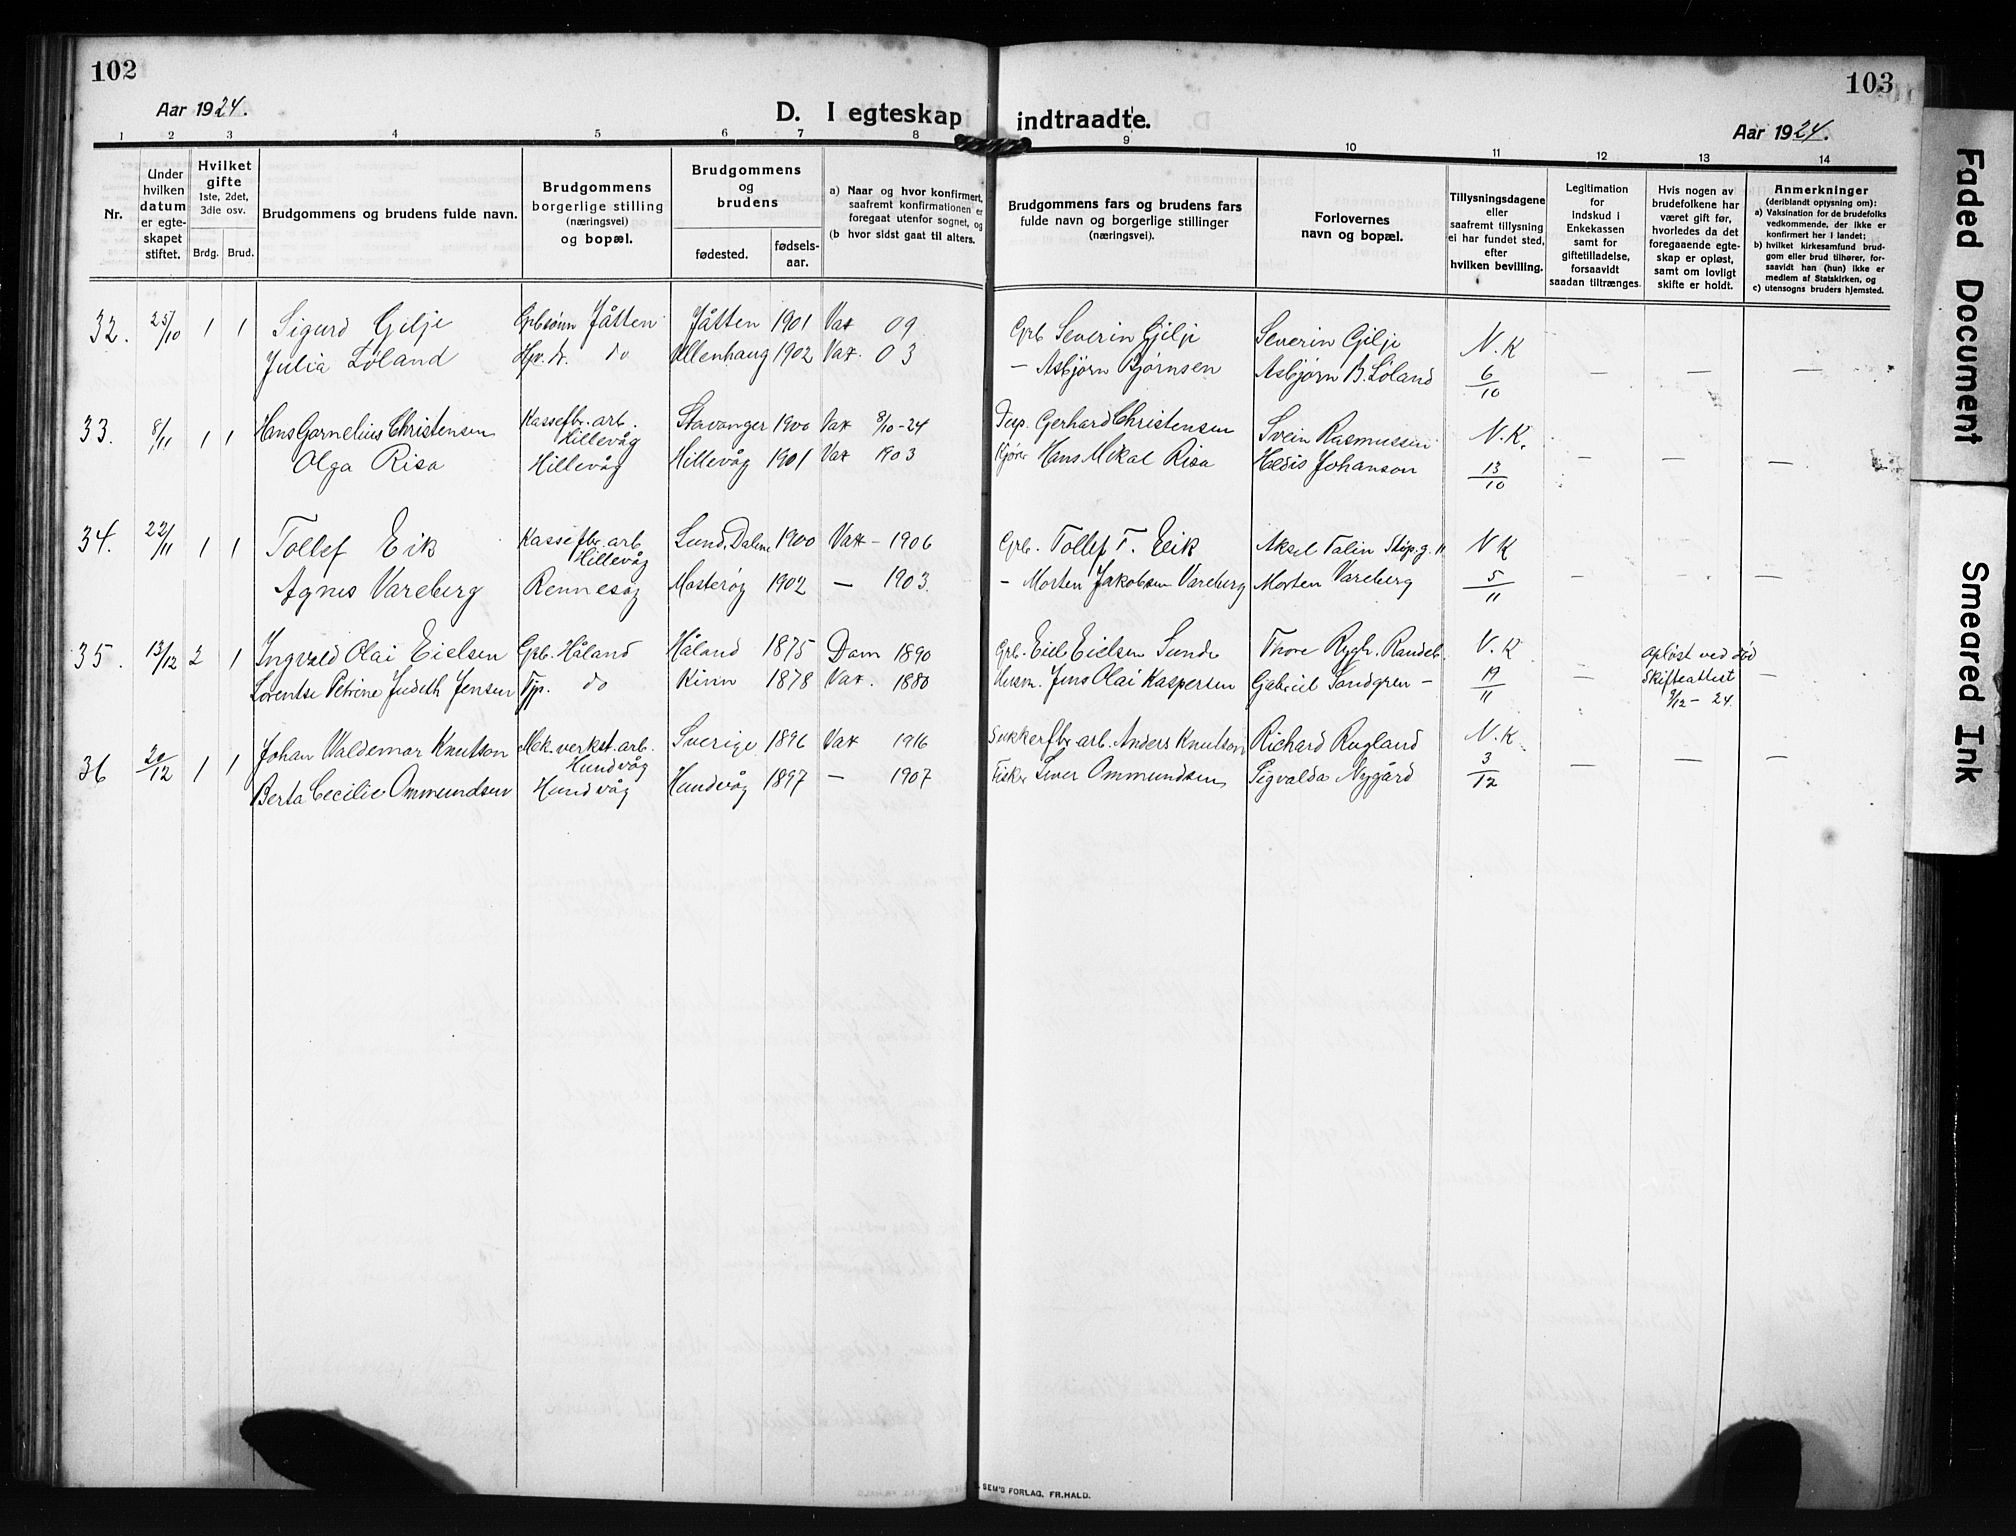 102
103
Aar 1924.
D. I egteskap indtraadte.
Aar 1924.
1 2 3 4 5 6 7 8 9 10 11 12 13 14
Nr.
Under
hvilken
datum
er egte-
skapet
stiftet.
Hvilket
gifte
1ste, 2det,
3die osv.
Brdg. Brud.
Brudgommens og brudens fulde navn.
Brudgommens
borgerlige stilling
(næringsvei)
og bopæl.
Brudgommens
og
brudens
fødested.
fødsels-
aar.
a) Naar og hvor konfirmert,
saafremt konfirmationen er
foregaat utenfor sognet, og
(b hvor sidst gaat til alters.
Brudgommens fars og brudens fars
fulde navn og borgerlige stillinger
(næringsvei).
Forlovernes
navn og bopæl.
Tillysningsdagene
eller
saafremt tillysning
ei har fundet sted,
efter
hvilken bevilling.
Legitimation
for
indskud i
Enkekassen
samt for
giftetilladelse,
forsaavidt
saadan tiltrænges.
Hvis nogen av
brudefolkene har
været gift før,
hvorledes da det
foregaaende egte-
skap er opløst,
samt om lovligt
skifte er holdt.
Anmerkninger
(deriblandt oplysning om):
a) Vaksination for de brudefolks
vedkommende, der ikke er
konfirmert her i landet;
b) hvilket kirkesamfund brud-
gom eller brud tilhører, for-
saavidt han (hun) ikke er
medlem af Statskirken, og
c) utensogns bruders hjemsted.
32. 25/10 1 1 Sigurd Gilje Grbsønn Jåtten Jåtten 1901 Vax 09 Grb Severin Gilje Severin Gilje N.K
Julia Løland do Ullenhaug 1902 Vax. 03 — Asbjørn Bjørnsen Asbjørn B. Løland 6/10 — — —
33. 8/11 1 1 Hans Gornelius Christensen Kassefbr. arb. Hillevåg Stavanger 1900 Vax 8/10-24 Gerhard Christensen Svein Rasmussen N.K.
Olga Risa Hillevåg Hillevåg 1901 Vax 1903 Kjører Hans Mikal Risa Johanson 13/10 — — —
34. 22/11 1 1 Tollef Eik Kassefbr. arb. Hillevåg Lund, Dalene 1900 Vax - 1906 Grb. Tollef T. Eik Aksel Talin N K
Agnes Vareberg Rennesøy Mosterøy 1902 — 1903. - Morten Jakobsen Vareberg Morten Vareberg 5/11 — — —
35. 13/12 2 1 Ingvald Olai Eielsen Grb. Håland Håland 1875 Dom 1890 Grb. Eiel Eielsen Sunde Thore Rygh. Randeb. N.K opløst ved død
Lorentse Petrine Judeth Jensen Tjp. do Kinn 1878 Vax. 1880 Husm. Jens Olai Kaspersen Gabriel Sandgren - 19/11 — Skifteattest 9/12 - 24. —
36 20/12 1 1 Johan Valdemar Knutson Mek. verkst. arb. Hundvåg Sverige 1896 Vax 1916 Sukkerfbr. arb. Anders Knutson Richard Rugland N.K.
Berta Cecilie Ommundsen Hundvåg Hundvåg 1897 — 1907 Fisker Siver Ommundsen Sigvalda Nygård 3/12 — — —
SEM'S FORLAG, FR.HALD.
Faded Document
Smeared Ink